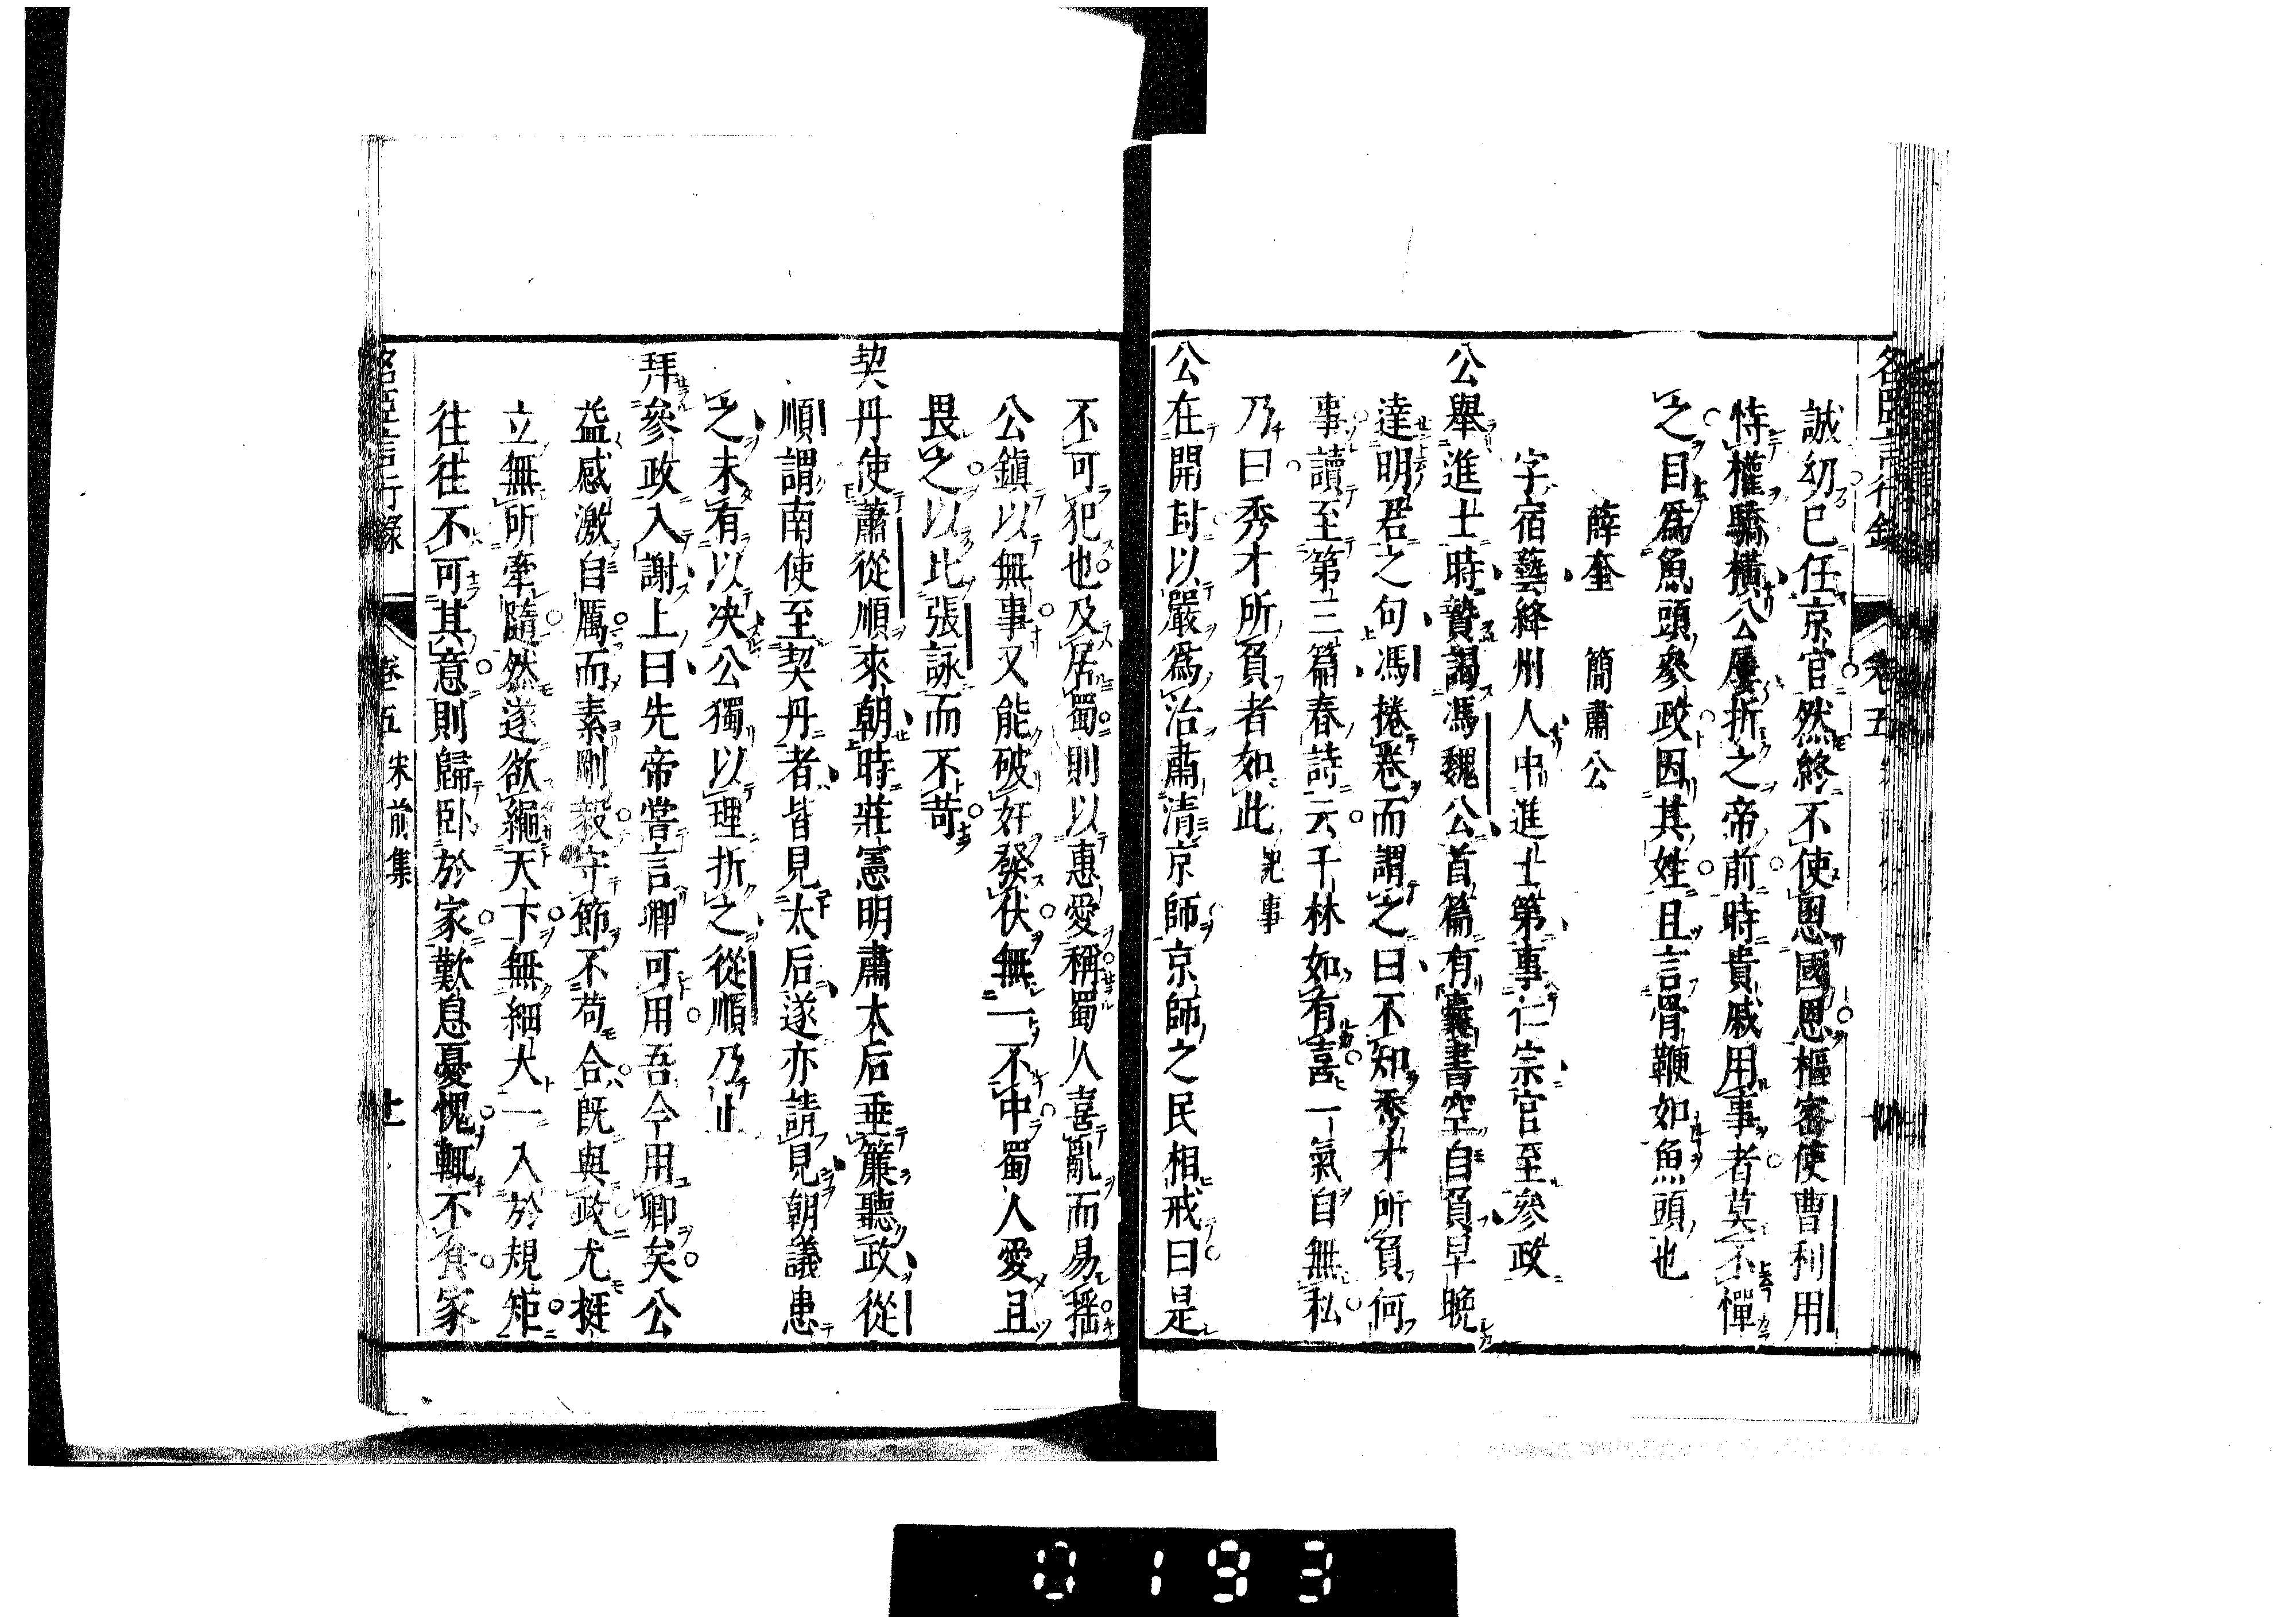 誠幼已任京官然終不使恩國恩樞密使曹利用
恃權驕橫公屢折之帝前時貴戚用事者莫不憚
之目爲魚頭參政因其姓且言骨鞕如魚頭也
薛奎 簡肅公
字宿藝絳州人中進士第事仁宗官至參政
公舉進士時贄謁馮魏公首篇有囊書空自負早晚
達明君之句馮捲卷而謂之曰不知秀才所負何
事讀至第三篇春詩云千林如有喜一氣自無私
乃曰秀才所負者如此 記事
公在開封以嚴爲治肅清京師京師之民相戒曰是
不可犯也及居蜀則以惠愛稱蜀人喜亂而易搖
公鎮以無事又能破奸發伏無一不中蜀人愛且
畏之以此張詠而不苛
契丹使蕭從順來朝時莊憲明肅太后垂簾聽政從
順謂南使至契丹者皆見太后遂亦請見朝議患
之未有以決公獨以理折之從順乃止
拜參政入謝上曰先帝嘗言卿可用吾今用卿矣公
益感激自厲而素剛毅守節不苟合既與政尤挺
立無所牽隨然遂欲繩天下無細大一入於規矩
往往不可其意則歸臥於家歎息憂愧輒不食家
名臣言行錄 卷五 宋前集